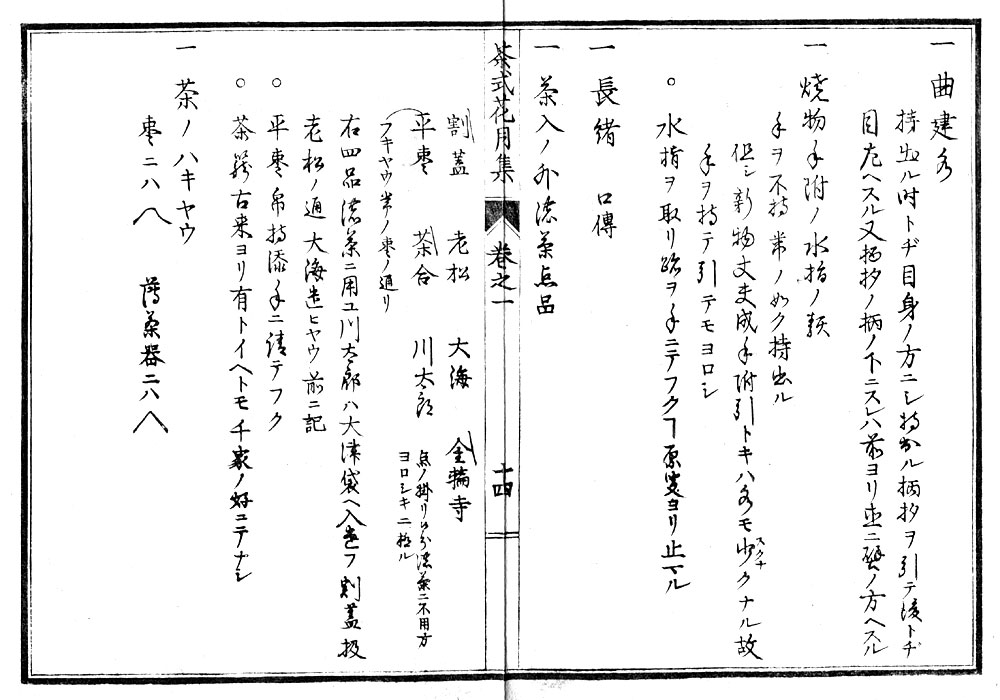 一 曲建水
持出ル時トヂ目身ノ方ニシ持出ル柄杓ヲ引テ後トヂ
目左ヘスル又柄杓ノ柄ノ下ニスレハ前ヨリ直ニ壁ノ方ヘスル
一 焼物手附ノ水指ノ類
手ヲ不持常ノ如ク持出ル
但シ新物丈夫成手附引トキハ水モ少クナル故
スクナ
手ヲ持テ引テモヨロシ
○ 水指ヲ取リ跡ヲ手ニテフクヿ原叟ヨリ止マル
一 長緒 口傳
一 茶入ノ外濃茶点品
茶式花月集 巻之一 十四
割蓋 老松 大海 金輪寺
平棗 茶合 川太郎 点ノ掛リ分濃茶ニ不用方
ヨロシキニ極ル
フキヤウ常ノ棗ノ通リ
右四品濃茶ニ用ユ川太郎ハ大津袋ヘ入遣フ割蓋扱
老松ノ通大海遣ヒヤウ前ニ記
○ 平棗帛持添手ニ請テフク
○ 茶籠古来ヨリ有トイヘトモ千家ノ好ニテナシ
一 茶ノハキヤウ
棗ニハ八 薄茶器ニハ八